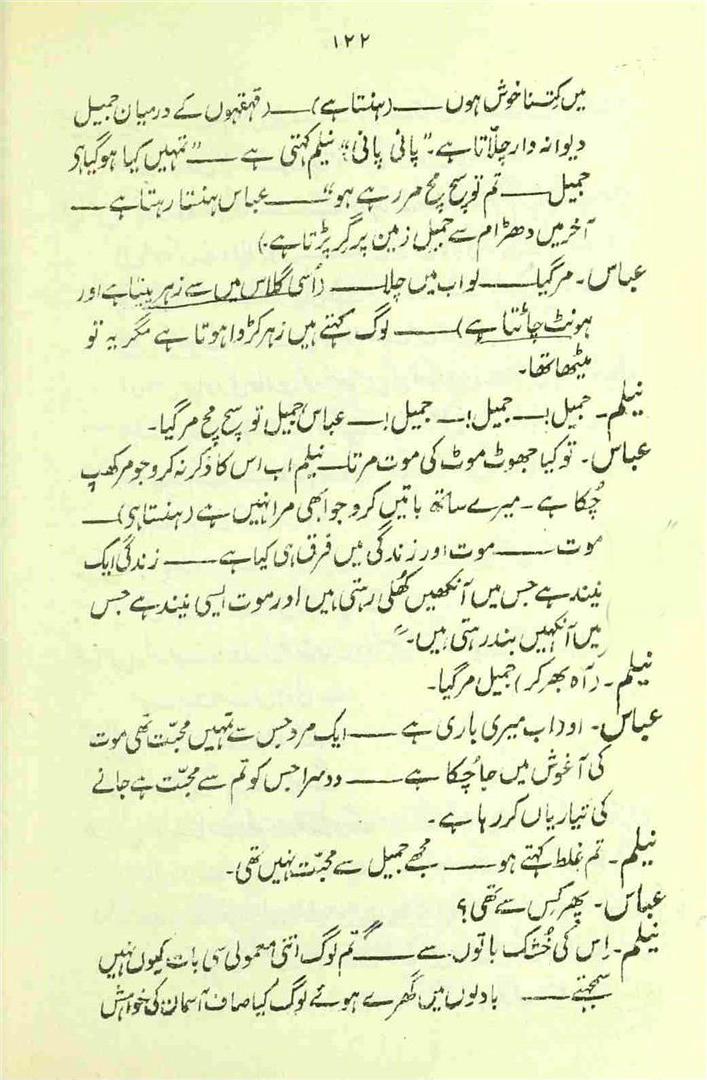 ۱۲۲
میں کتنا خوش ہوں ——— (ہنستا ہے) —— (قہقہوں کے درمیان جمیل
دیوانہ وار چلّاتا ہے۔ "پانی پانی" نیلم کہتی ہے —— "تمہیں کیا ہوگیا ہی
جمیل —— تم تو سچ مچ مر رہے ہو" —— عباس ہنستا رہتا ہے ——
آخر میں دھڑام سے جمیل زمین پر گر پڑتا ہے۔)
عباس۔ مر گیا —— لو اب میں چلا —— (اُسی گلاس میں سے زہر پیتا ہے اور
ہونٹ چاٹتا ہے) —— لوگ کہتے ہیں زہر کڑوا ہوتا ہے مگر یہ تو
میٹھا تھا۔
نیلم۔ جمیل! — جمیل! — جمیل! — عباس جمیل تو سچ مچ مر گیا۔
عباس۔ تو کیا جھوٹ موٹ کی موت مرتا — نیلم اب اس کا ذکر نہ کرو جو مر کھپ
چُکا ہے۔ میرے ساتھ باتیں کرو جو ابھی مرا نہیں ہے (ہنستا ہی) ——
موت —— موت اور زندگی میں فرق ہی کیا ہے —— زندگی ایک
نیند ہے جس میں آنکھیں کھُلی رہتی ہیں اور موت ایسی نیند ہے جس
میں آنکھیں بند رہتی ہیں۔"
نیلم۔ (آہ بھر کر) جمیل مر گیا۔
عباس۔ اور اب میری باری ہے —— ایک مرد جس سے تمہیں محبّت تھی موت
کی آغوش میں جا چُکا ہے —— دوسرا جس کو تم سے محبّت ہے جانے
کی تیاریاں کر رہا ہے۔
نیلم۔ تم غلط کہتے ہو —— مجھے جمیل سے محبّت نہیں تھی۔
عباس۔ پھر کِس سے تھی؟
نیلم۔ اِس کی خُشک باتوں سے —— تم لوگ اتنی معمولی سی بات کیوں نہیں
سمجھتے —— بادلوں میں گھرے ہوئے لوگ کیا صاف آسمان کی خواہش